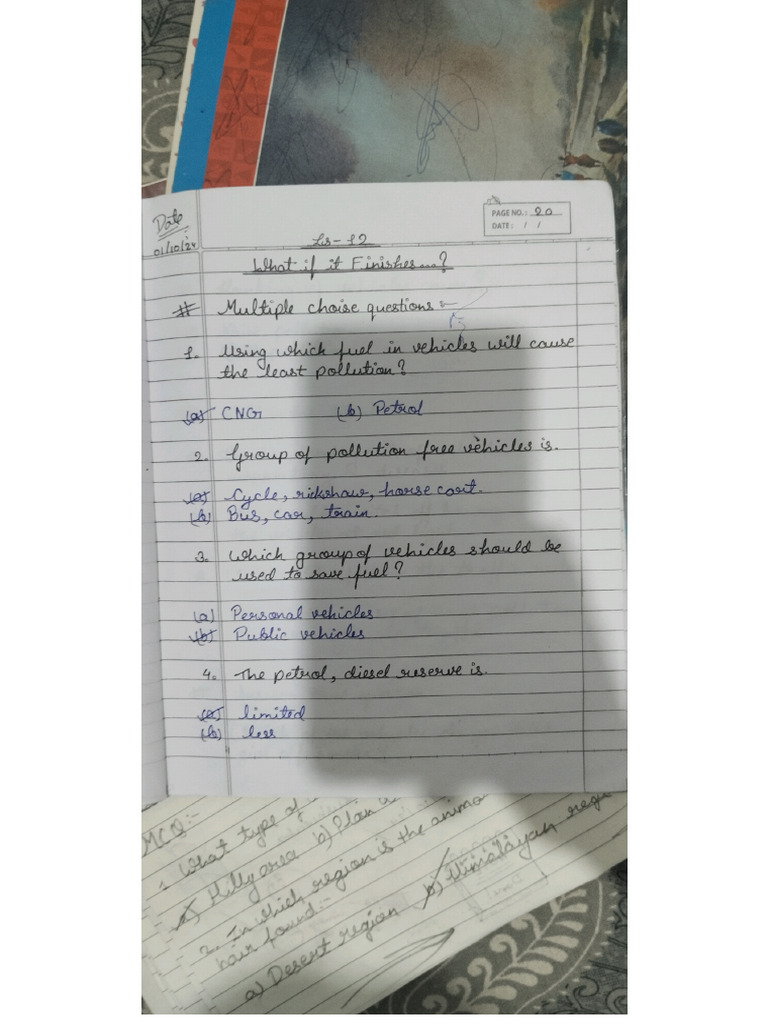 Date
01/10/24
PAGE NO.: 20
DATE: / /
Ls-12
What if it Finishes...?
# Multiple choise questions :-
1. Using which fuel in vehicles will cause
the least pollution?
(a) CNG (b) Petrol
2. Group of pollution free vehicles is.
(a) Cycle, rickshaw, horse cart.
(b) Bus, car, train.
3. Which group of vehicles should be
used to save fuel?
(a) Personal vehicles
(b) Public vehicles
4. The petrol, diesel reserve is.
(a) limited
(b) less
MCQ:-
1. What type of
a) Hilly area b) Plain
2. In which region is the
hair found:-
a) Desert region b) Himalayan